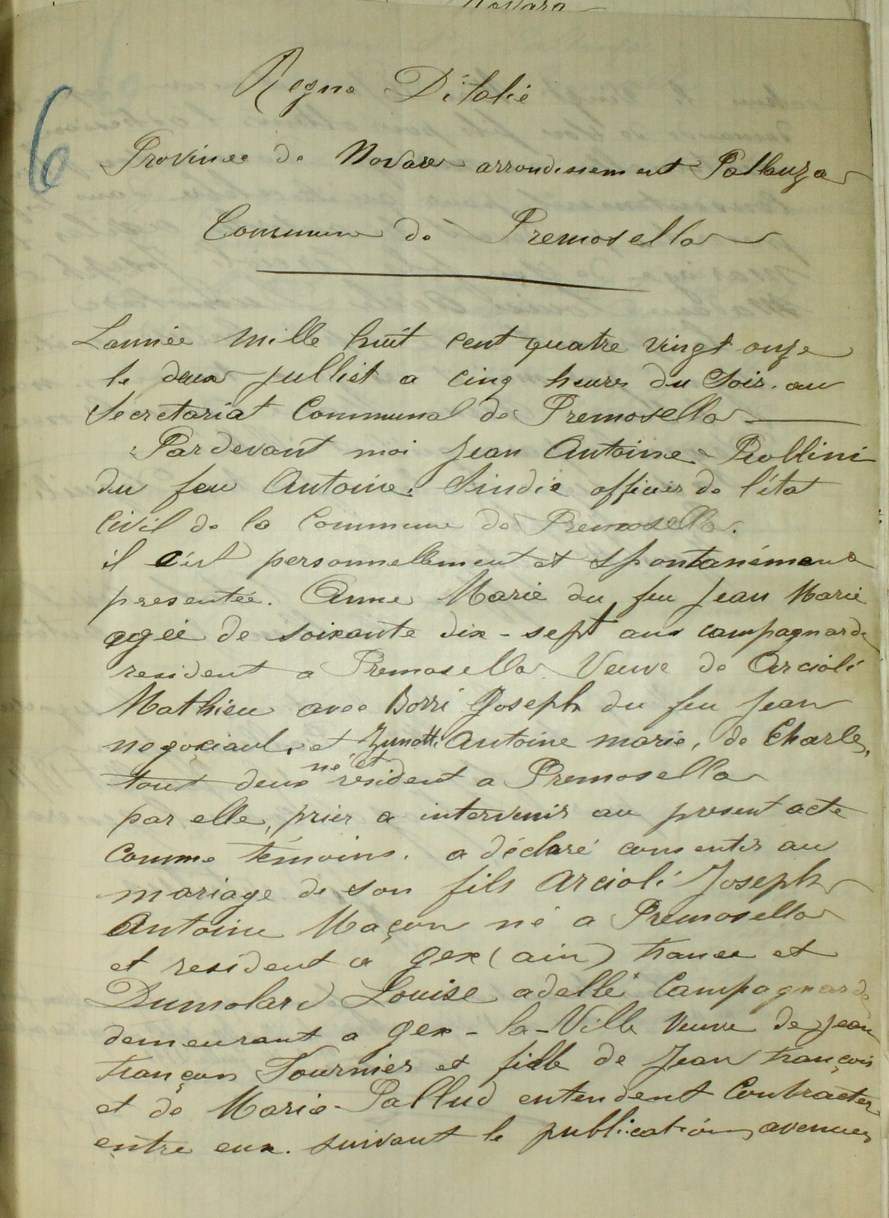 6
Regne D'italie
Province de Novare arrondissement Pallanza
Commune de Premosello
L'année mille huit cent quatre vingt onze
le deux Julliet a cinq heures du Soir. au
Secretariat Communal de Premosello
Pardevant moi Jean Antoine Rollini
du feu Antoine. Sindic officier de l'état
Civil de la Commune de Premosello.
il c'est personnellement et spontanément
presentée. Anne Marie du feu Jean Marie
agée de soixante dix-sept ans campagnarde
resident a Premosello Veuve de Arcioli
Mathieu avec Borri Joseph du feu Jean
negoziant, et Zunotti Antoine marie, de Charles,
tout deux né et résident a Premosello
par elle, prier a intervenir au present acte
Comme témoins. a déclaré consentir au
mariage de son fils Arcioli Joseph
Antoine Maçon né a Premosello
et resident a gex (ain) france et
Dumolard Louise adelle Campagnarde
demeurant a gex-la-Ville Veuve de Jean
françois Fournier et fille de Jean françois
et de Marie Pallud entendent Contracter
entre eux. suivant le publication, avenues